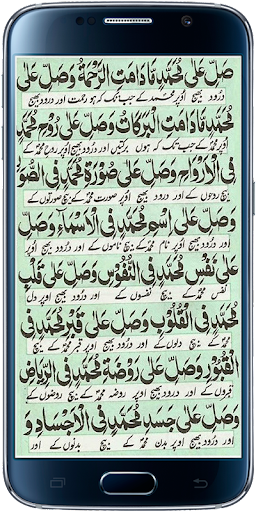 صَلِّ عَلٰى مُحَمَّدٍ مَّادَامَتِ الرَّحْمَةُ وَصَلِّ عَلٰى
درود بھیج اوپر محمد کے جب تک کہ ہو رحمت اور درود بھیج
مُحَمَّدٍ مَّادَامَتِ الْبَرَكَاتُ وَصَلِّ عَلٰى رُوْحِ مُحَمَّدٍ
محمد کے جب تک کہ ہوں برکتیں اور درود بھیج اوپر روح محمد کے
فِى الْاَرْوَاحِ وَصَلِّ عَلٰى صُوْرَةِ مُحَمَّدٍ فِى الصُّوَرِ
بیچ روحوں کے اور درود بھیج اوپر صورت محمد کے بیچ صورتوں کے
وَصَلِّ عَلٰى اِسْمِ مُحَمَّدٍ فِى الْاَسْمَآءِ وَصَلِّ
اور درود بھیج اوپر نام محمد کے بیچ ناموں کے اور درود بھیج اوپر
عَلٰى نَفْسِ مُحَمَّدٍ فِى النُّفُوْسِ وَصَلِّ عَلٰى قَلْبِ
نفس محمد کے بیچ نفسوں کے اور درود بھیج اوپر دل
مُحَمَّدٍ فِى الْقُلُوْبِ وَصَلِّ عَلٰى قَبْرِ مُحَمَّدٍ فِى
محمد کے بیچ دلوں کے اور درود بھیج اوپر قبر محمد کے بیچ
الْقُبُوْرِ وَصَلِّ عَلٰى رَوْضَةِ مُحَمَّدٍ فِى الرِّيَاضِ
قبروں کے اور درود بھیج اوپر روضہ محمد کے بیچ روضوں کے
وَصَلِّ عَلٰى جَسَدِ مُحَمَّدٍ فِى الْاَجْسَادِ وَ
اور درود بھیج اوپر بدن محمد کے بیچ بدنوں کے اور